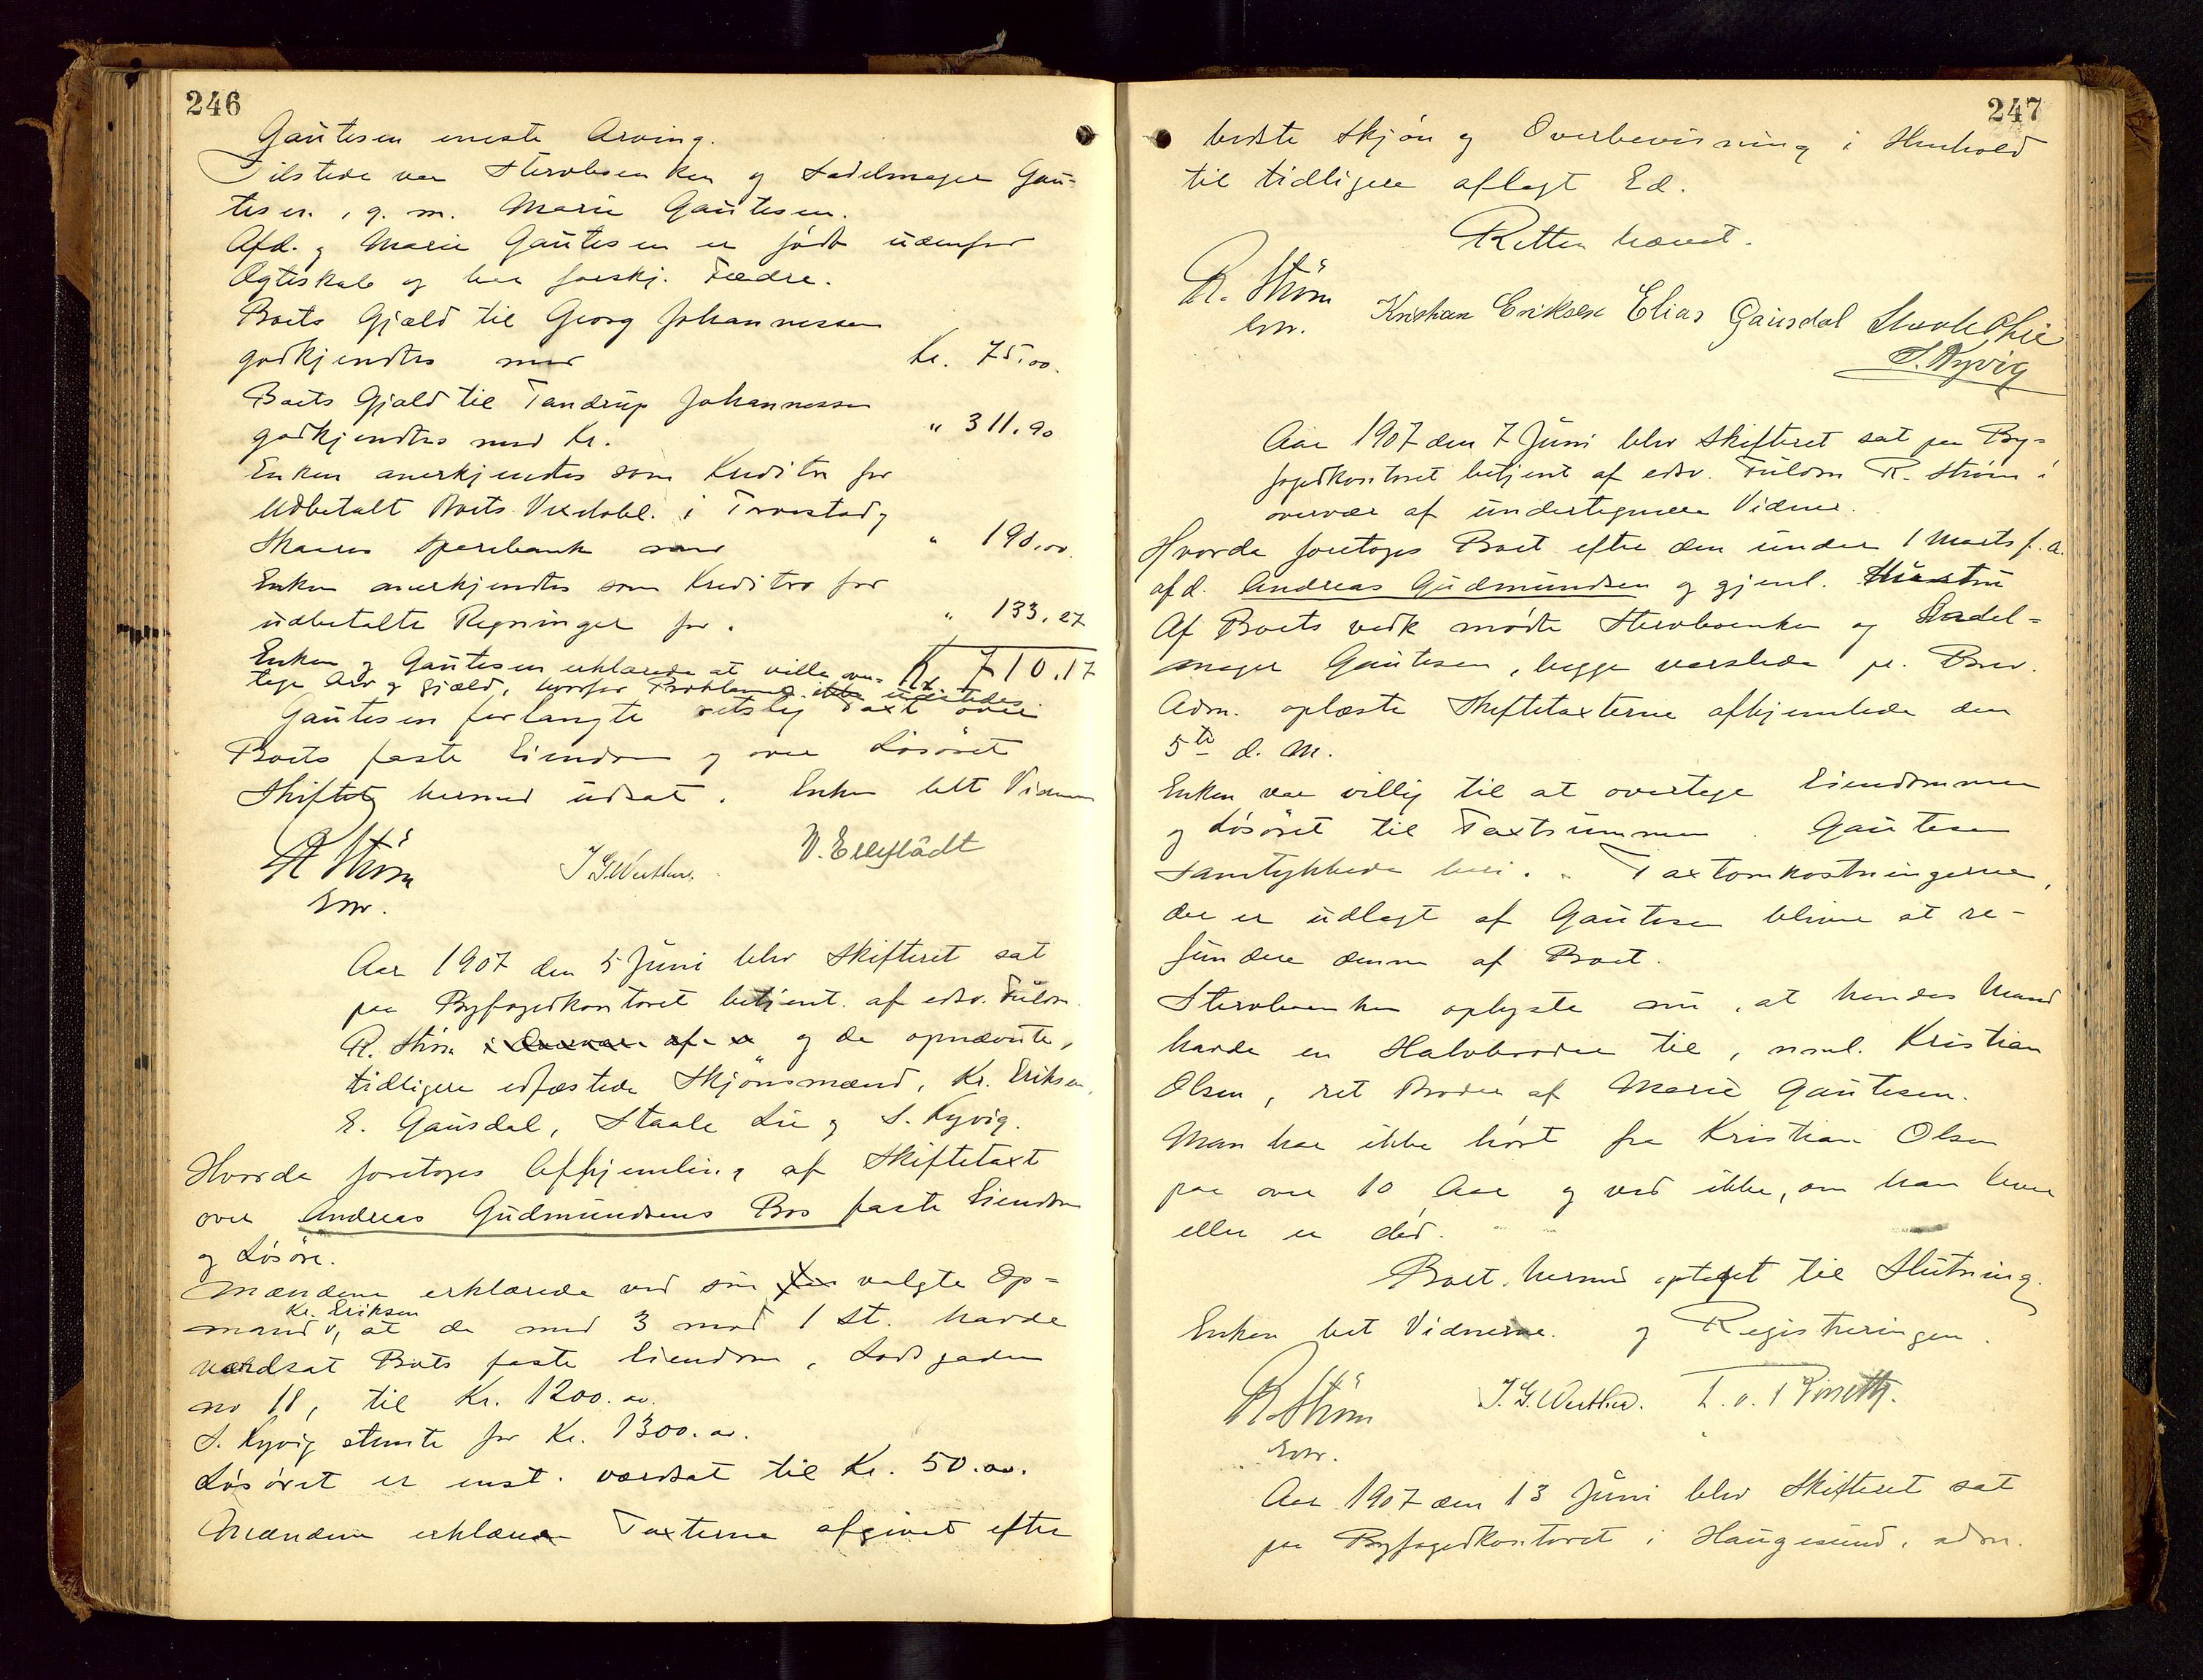 246
Gautesen eneste Arving.
Tilstede var Stervboenken og Sadelmager Gau-
tesen, g. m. Marie Gautesen.
Afd. og Marie Gautesen er født udenfor
Ægteskab og har forskj. Fædre.
Boets Gjæld til Georg Johannessen
godkjendtes med Kr. 75.00.
Boets Gjæld til Tandrup Johannessen
godkjendtes med Kr. " 311.90
Enken anerkjendtes som Kreditor for
Udbetalt Boets Vexelobl. i Torvestad og
Skaares Sparebank med " 190.00.
Enken anerkjendtes som Kreditor for
udbetalte Regninger for. " 133.27
Enken og Gautesen erklærede at ville over- Kr. 710.17
tage Arv og Gjæld, hvorfor Proklama ikke udstedes
Gautesen forlangte retslig Taxt over
Boets faste Eiendom og over Løsøret
Skiftet hermed udsat. Enken lelt Vidnerne
R Strøm J. G. Wuthus. V. Ellefládt
Edsv.
Aar 1907 den 5 Juni blev Skifteret sat
paa Byfogedkontoret betjent af edsv. Fuldm.
R. Strøm i Overvær af u og de opnævnte,
tidligere edfæstede Skjønsmænd, Kr. Eriksen,
E. Gausdal, Staale Lie og S. Kyvig.
Hvorda foretoges Afhjemling af Skiftetaxt
over Andreas Gudmundsens Bos faste Eiendom
og Løsøre.
Mændene erklærede ved sin valgte Op-
Kr. Eriksen
mand v, at de med 3 mod 1 St. havde
værdsat Boets faste Eiendom, Lodsgaden
no 18, til Kr. 1200.00.
S. Kyvig stemte for Kr. 1300.00.
Løsøret er enst. værdsat til Kr. 50.00.
Mændene erklærer Taxterne afgivet efter
247
bedste Skjøn og Overbevisning i Henhold
til tidligere aflagt Ed.
Retten hævet.
R. Strøm Kristian Eriksen Elias Gausdal Staale Lie
Edsv. S. Kyvig
Aar 1907 den 7 Juni blev Skifteret sat paa By-
fogedkontoret betjent af edsv. Fuldm R. Strøm i
overvær af undertegnede Vidner.
Hvorda foretoges Boet efter den under 1 Marts f. a.
afd. Andreas Gudmundsen og gjenl. Hustru
Af Boets vedk mødte Stervboenken og Sadel-
mager Gautesen, begge varslede pr. Brev.
Adm. oplæste Skiftetaxterne afhjemlede den
5te d. M.
Enken var villig til at overtage Eiendommen
og Løsøret til Taxtsummen. Gautesen
samtykkede heri. Taxtomkostningerne,
der er udlagt af Gautesen bliver at re-
fundere denne af Boet.
Stervboenken oplyste nu, at hendes Mand
havde en Halvbroder til, nml. Kristian
Olsen, ret Broder af Marie Gautesen.
Man har ikke hørt fra Kristian Olsen
paa over 10 Aar og ved ikke, om han lever
eller er død.
Boet hermed optaget til Slutning.
Enken bet Vidnerne. og Registreringen.
R. Strøm J. G. Wuthus.
Edsv.
Aar 1907 den 13 Juni blev Skifteret sat
paa Byfogedkontoret i Haugesund, adm.